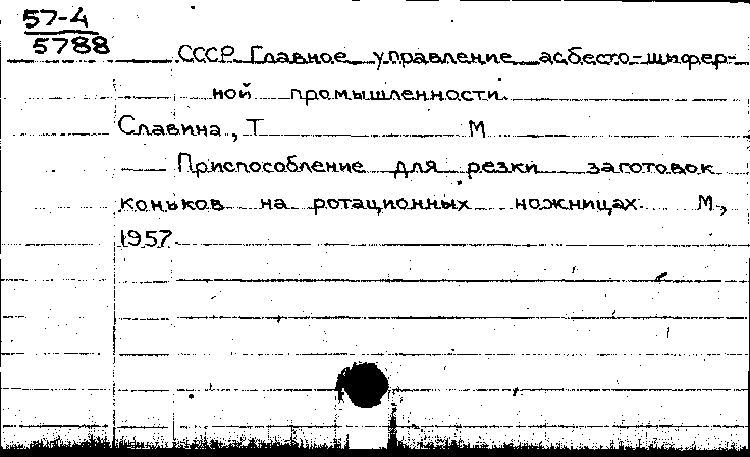 57-4
5788
СССР Главное управление асбесто-шифер-
ной промышленности.
Славина, Т М
Приспособление для резки заготовок
коньков на ротационных ножницах. М.,
1957